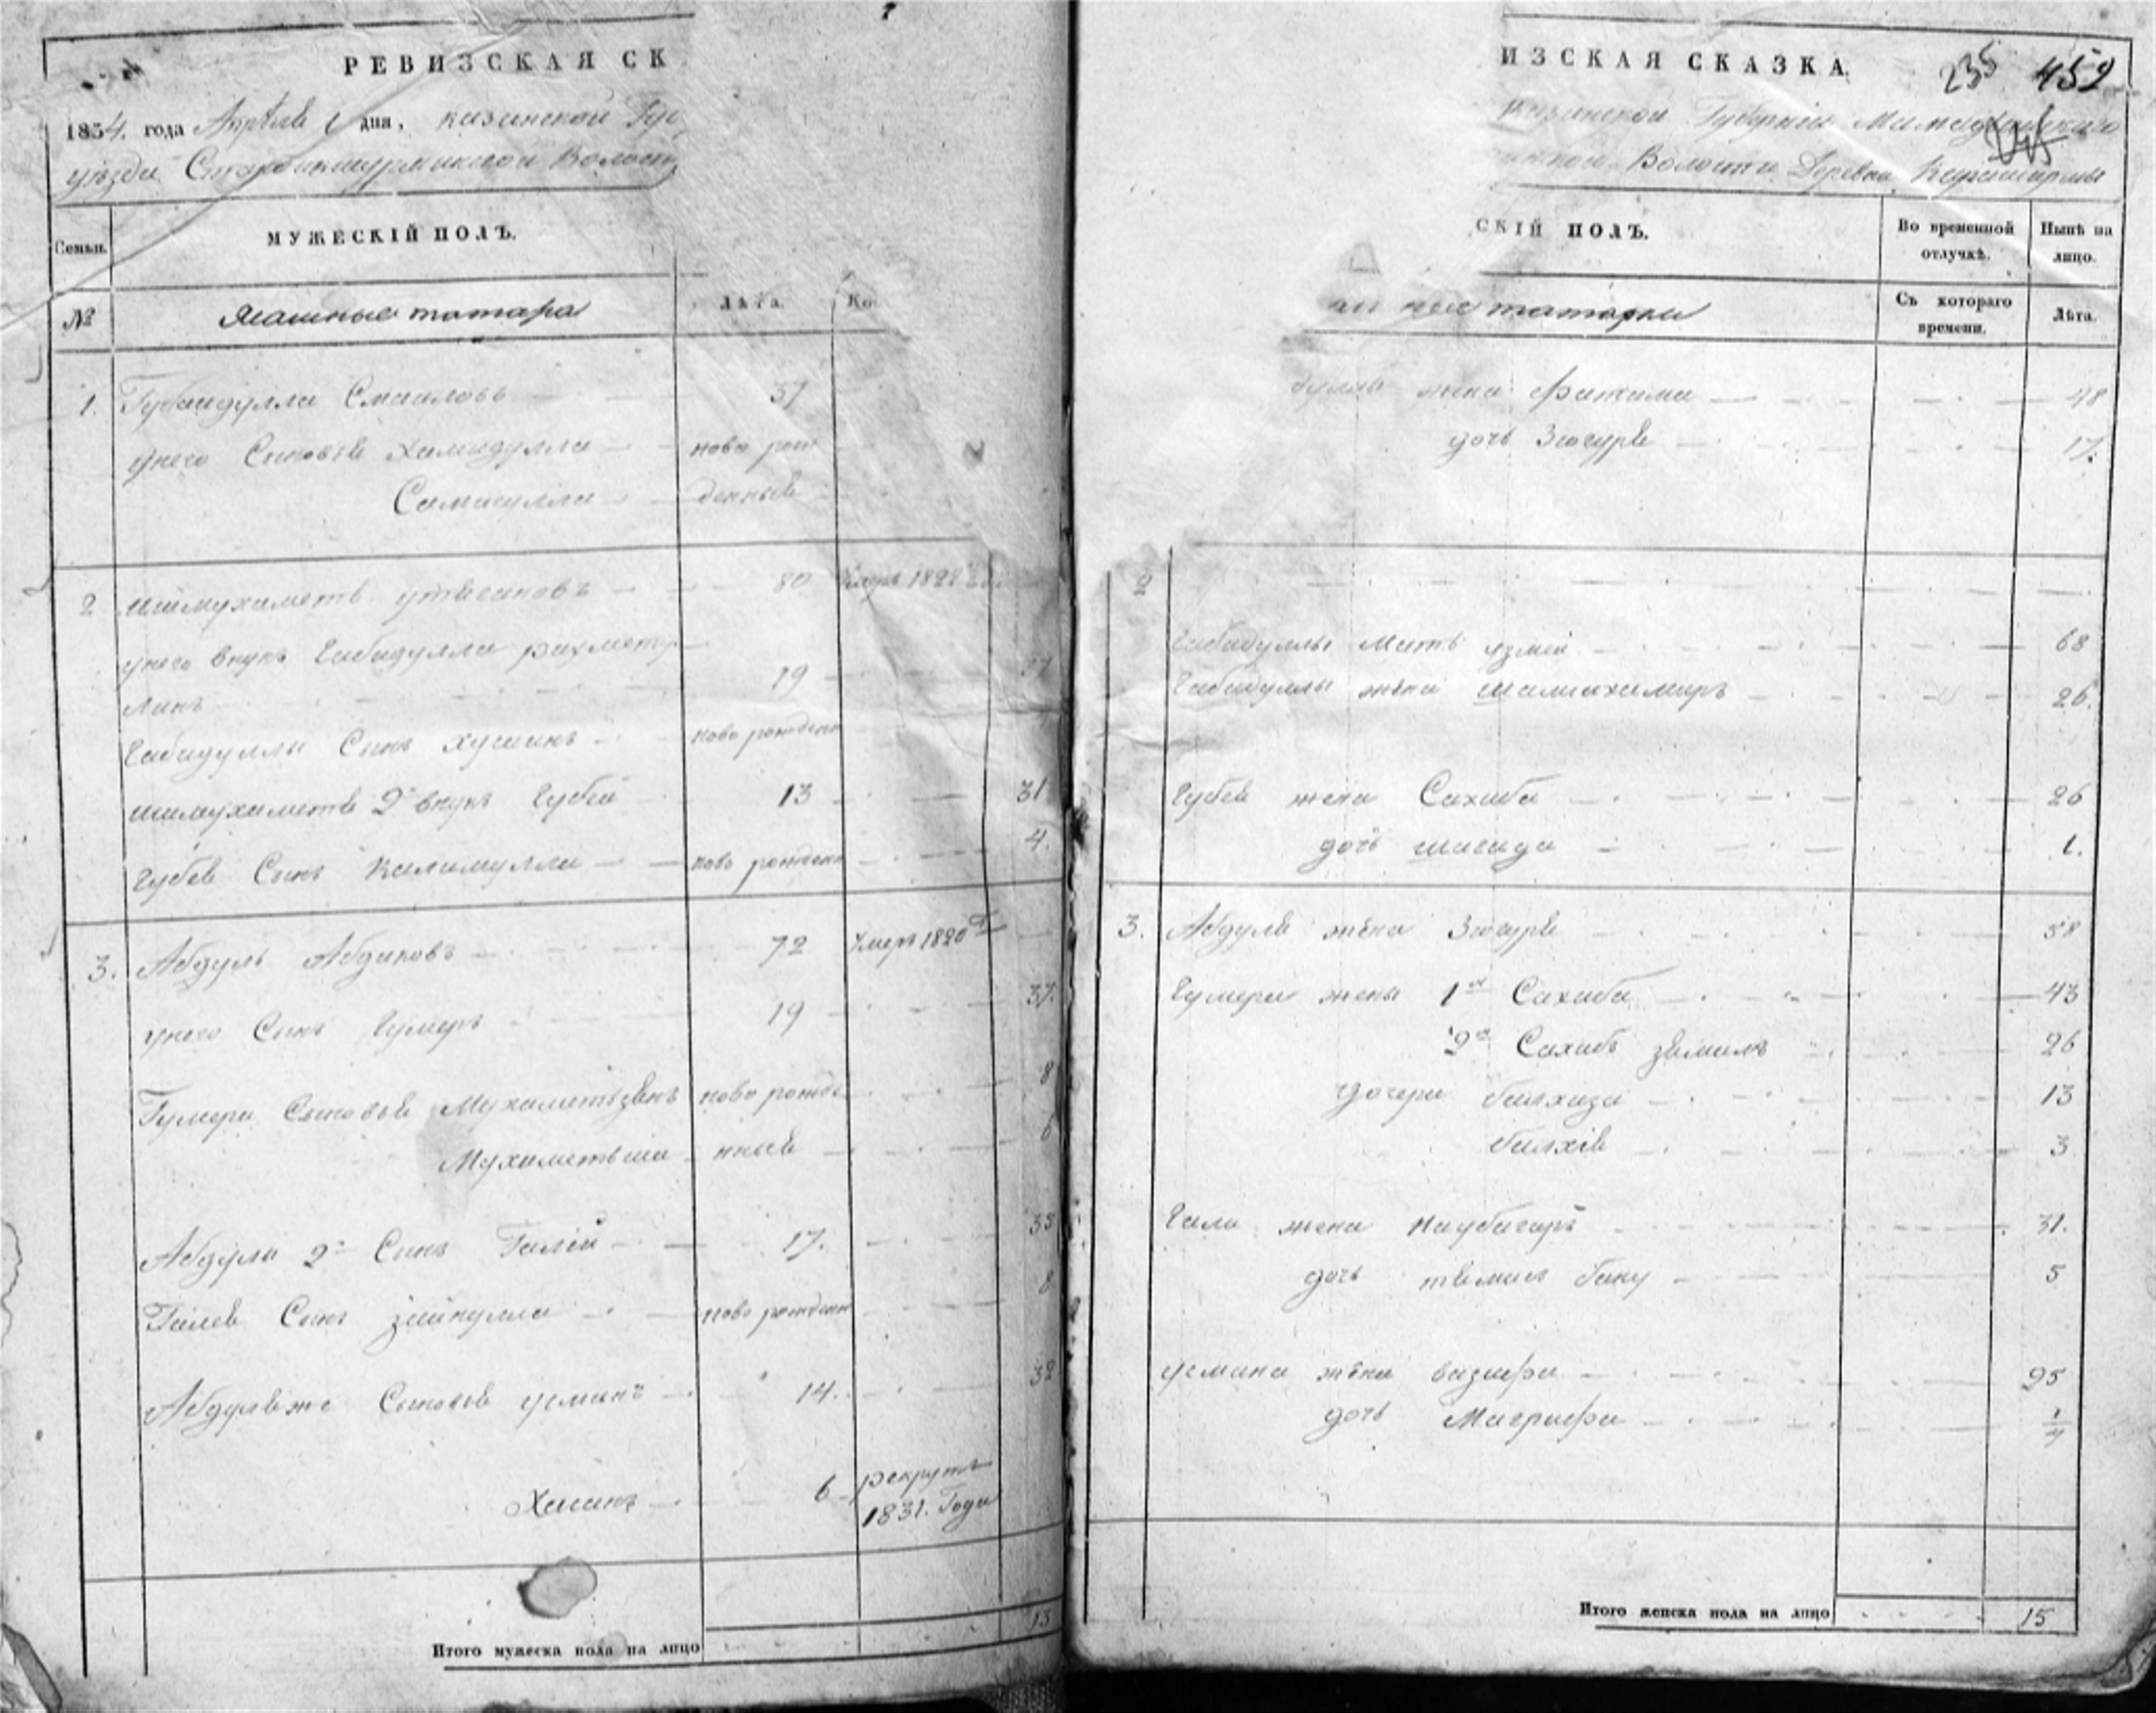 РЕВИЗСКАЯ СК
1834. года Апреля 1 дня, Казанской Губ
уезда Староикшурминской Волости
Семьи.
МУЖЕСКІЙ ПОЛЪ.
№
Ясашные татара
Лѣта.
Ко
1. Губайдулла Смаиловъ 37
у него Сыновья Хамидулла ново рож
Самигулла денные
2 у него внукъ Габидулла рахметул
линъ 19
Габидуллы Сынъ хусаинъ ново рожден
2й внукъ Губей 13 31
Губея Сынъ Калимулла ново рожден 4.
3. Абдулъ Абдиковъ 72 Умеръ 1820
у него Сынъ Гумеръ 19 37.
Гумера Сыновья Мухаметзянъ ново рожде 8
Мухаметша нные 6
Абдула 2й Сынъ Галей 17. 35
Галея Сынъ зайнулла ново рожден 8
Абдула же Сыновья усманъ 14. 32
Хасанъ 6 рекрутъ
1831. Года
Итого мужеска пола на лицо 13
ИЗСКАЯ СКАЗКА
235 452
Казанской Губерніи Мамадышскаго
Волости Деревня
СКІЙ ПОЛЪ.
Во временной отлучкѣ.
Нынѣ на лицо.
татарки
Съ котораго времени.
Лѣта.
жена Фатима 48
дочь Зюгуре 17.
2
Габидуллы Мать 68
Габидуллы жена 26.
Губея жена Сахиба 26
дочь шагида 1.
3. Абдула жена Зюгуре 58
Гумера жены 1я Сахиба 43
2я Сахибъ земилъ 26
дочери 13
3
Гали жена 31.
дочь бану 5
усмана жена вазифа 25
дочь Магрифа 1/4
Итого женска пола на лицо 15